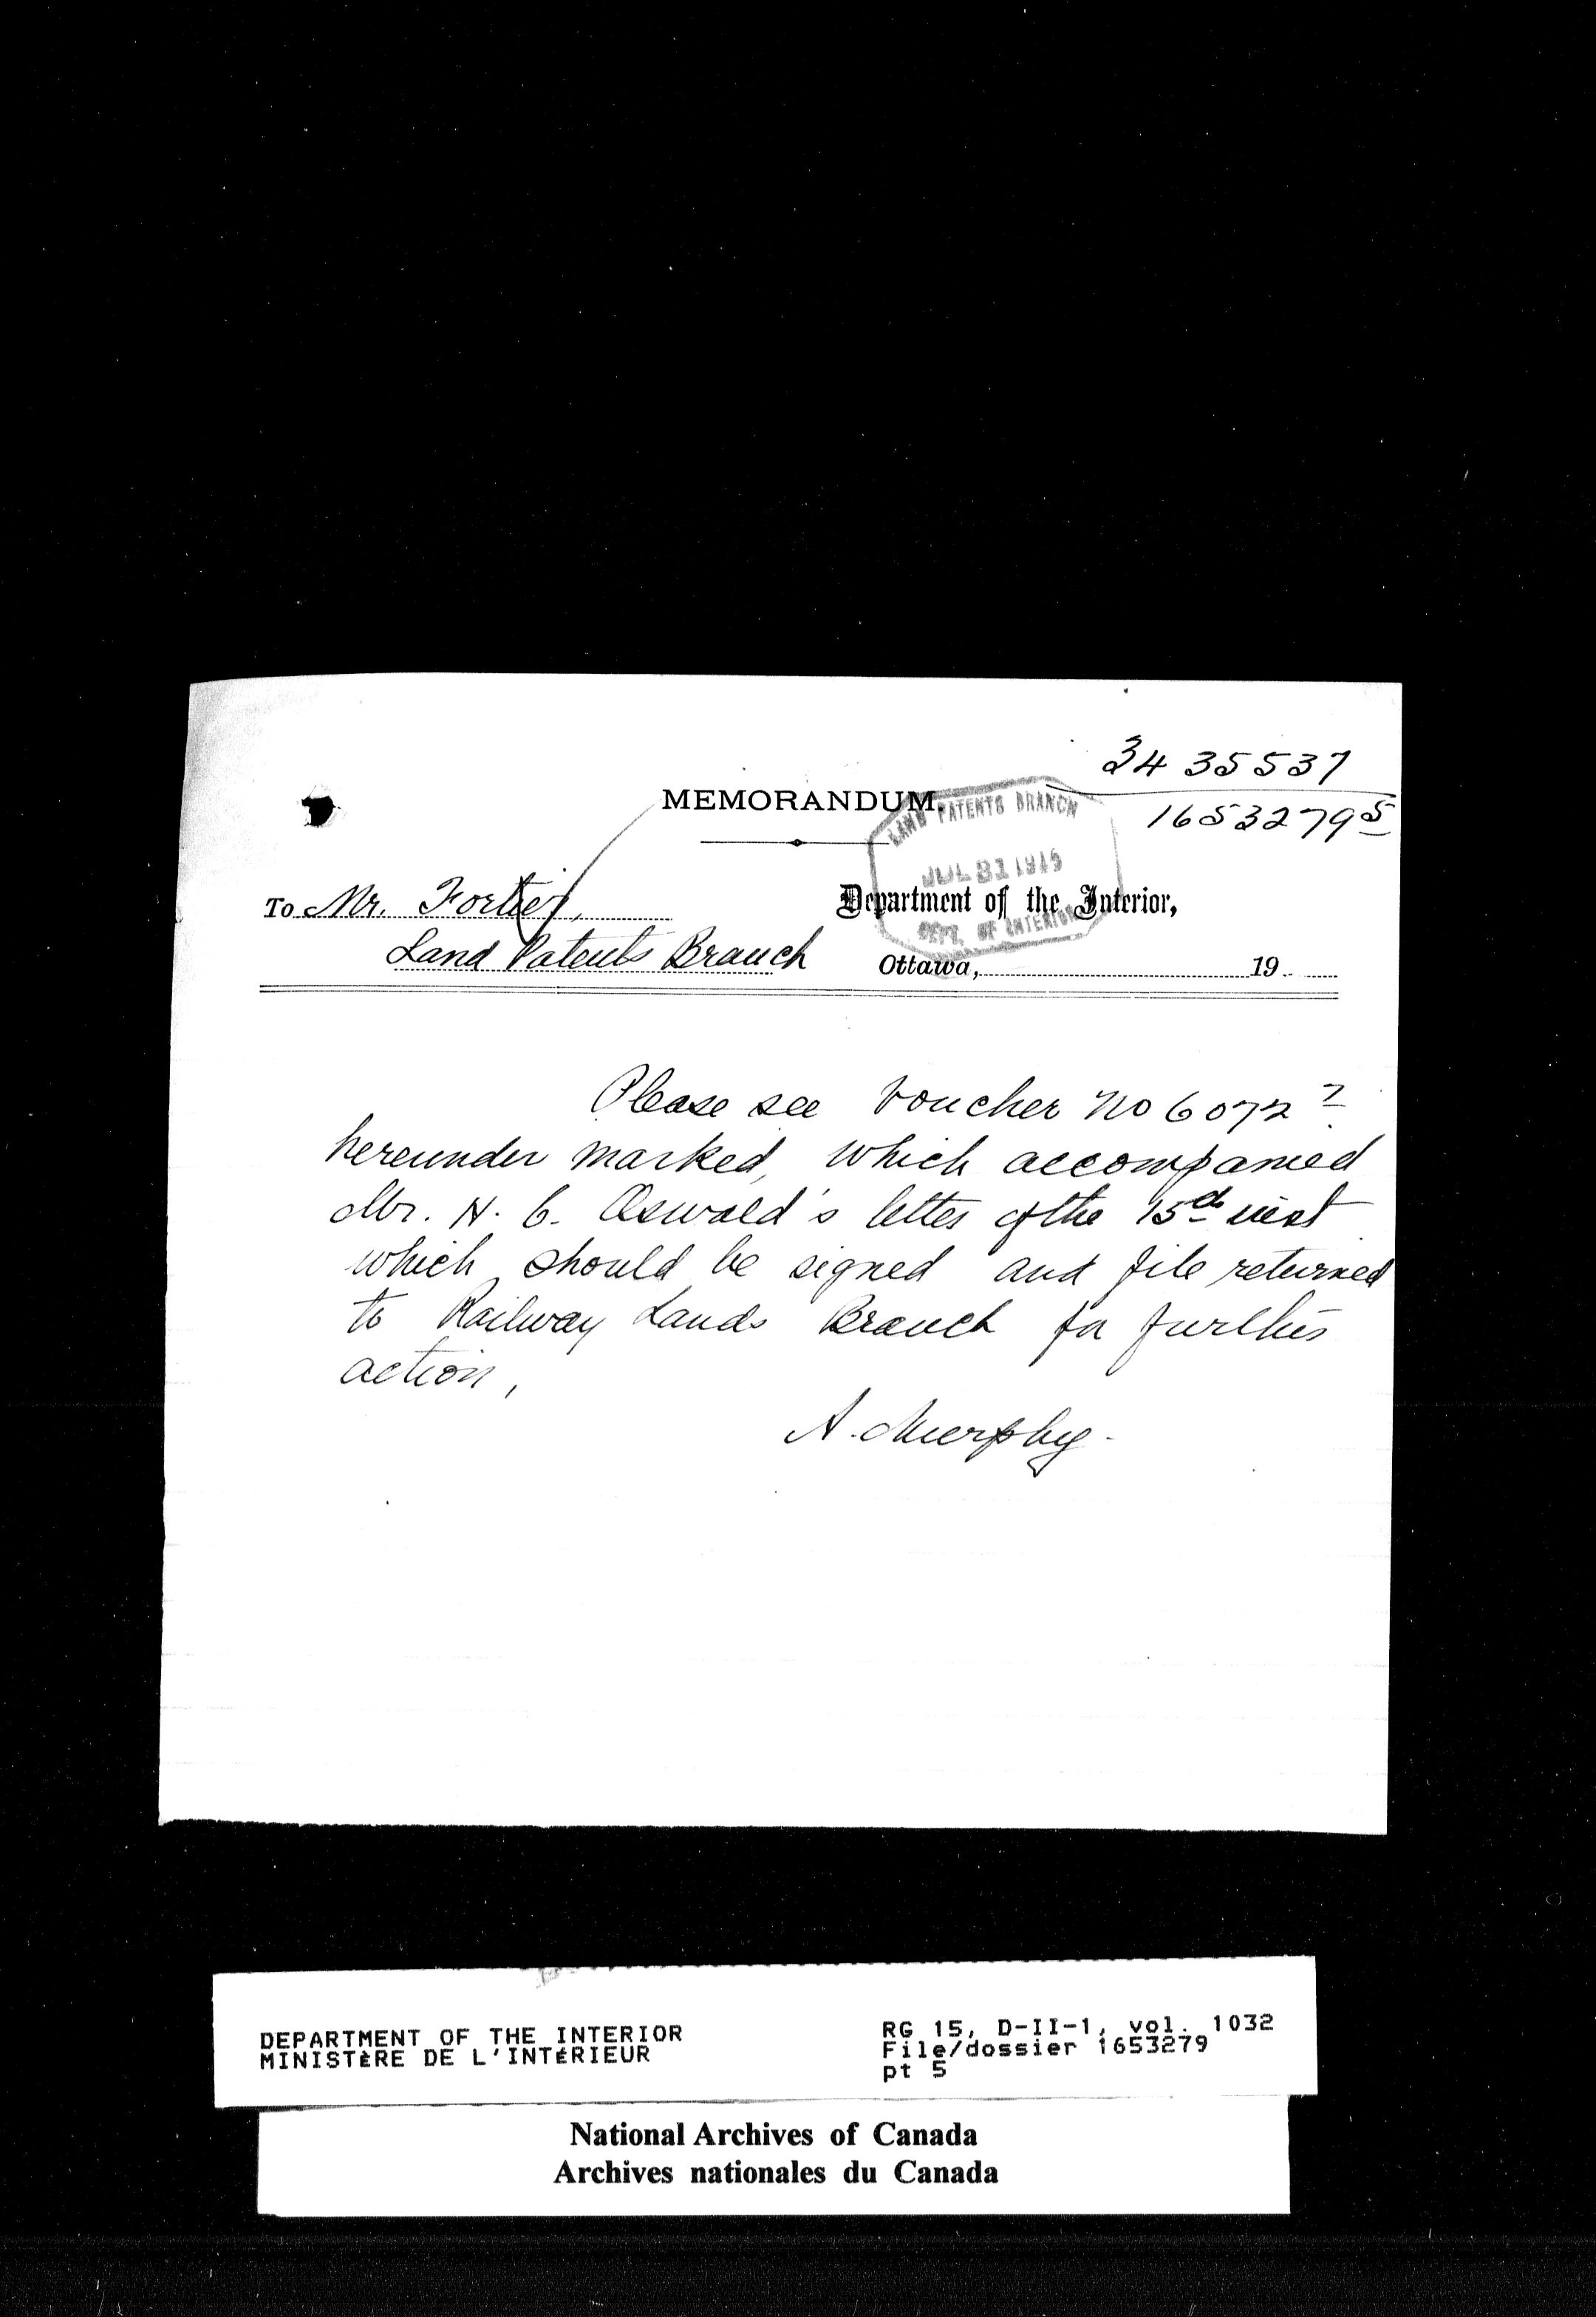 3435537
1653279 5
MEMORANDUM.
LAND PATENTS BRANCH
JUL 31 1919
DEPT. OF INTERIOR
To Mr. Fortier,
Land Patents Branch
Department of the Interior,
Ottawa, 19
Please see Voucher No 6072
hereunder marked, which accompanied
Mr. H. C. Oswald's letter of the 15th inst
which should be signed and file returned
to Railway Lands Branch for further
action,
A. Murphy.
DEPARTMENT OF THE INTERIOR
MINISTÈRE DE L'INTÉRIEUR
RG 15, D-II-1, vol. 1032
File/dossier 1653279
pt 5
National Archives of Canada
Archives nationales du Canada